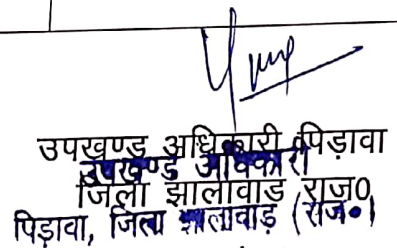 उपखण्ड अधिकारी पिड़ावा
उपखण्ड अधिकारी
जिला झालावाड़ राज०
पिड़ावा, जिला झालावाड़ (राज०)